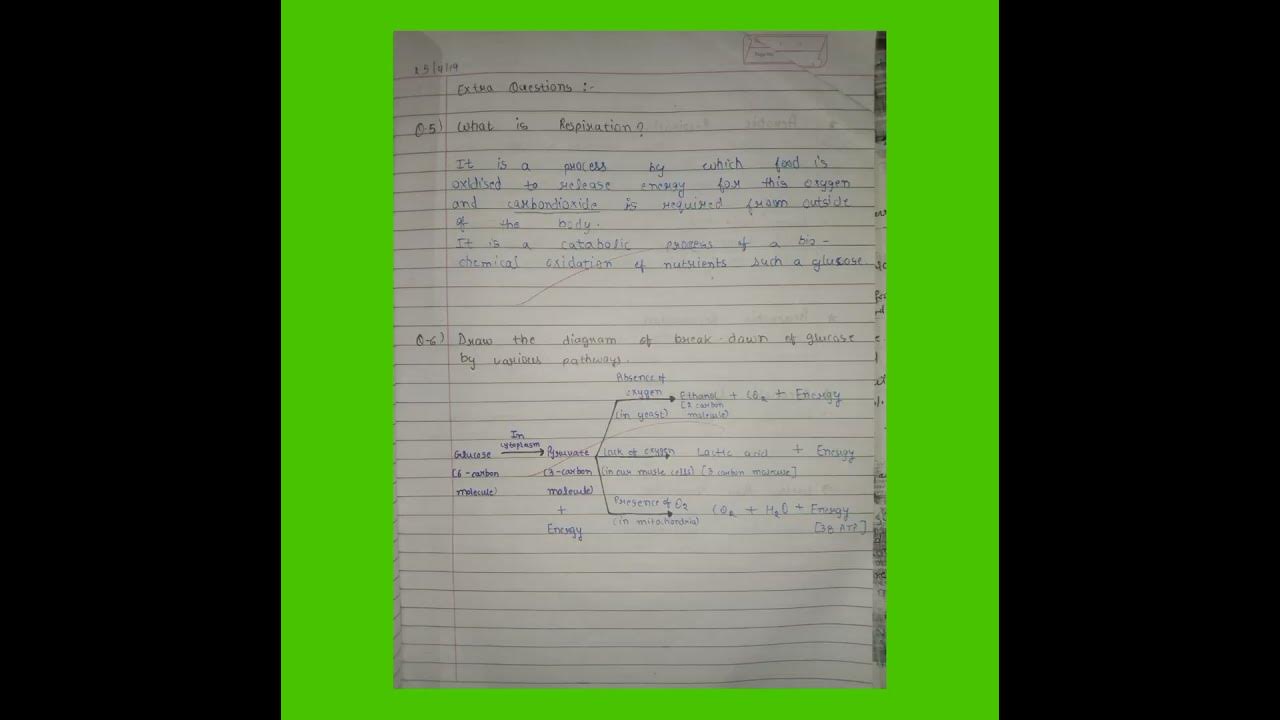 25/4/19
Extra Questions :-
Q.5) What is Respiration?
It is a process by which food is
oxidised to release energy for this oxygen
and carbondioxide is required from outside
of the body.
It is a catabolic process of a bio-
chemical oxidation of nutrients such a glucose
Q-6) Draw the diagram of break-down of glucose
by various pathways.
Absence of
oxygen Ethanol + CO2 + Energy
(in yeast) [2 carbon
molecule)
In
cytoplasm
Glucose Pyruvate Lack of oxygen Lactic acid + Energy
(6-carbon (3-carbon (in our muscle cells) [3 carbon molecule]
molecule) molecule)
+ Presence of O2 CO2 + H2O + Energy
Energy (in mitochondria) [38 ATP]